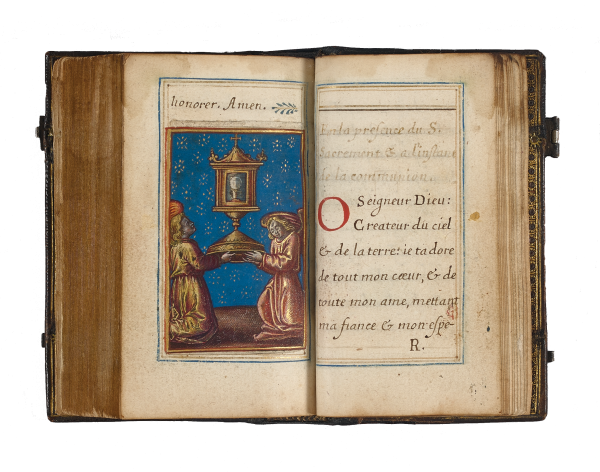 honorer. Amen.
En la presence du S.
Sacrement & a l'instant
de la communion.
O Seigneur Dieu:
Createur du ciel
& de la terre: ie ta dore
de tout mon cœur, & de
toute mon ame, mettant
ma fiance & mon espe-
R.